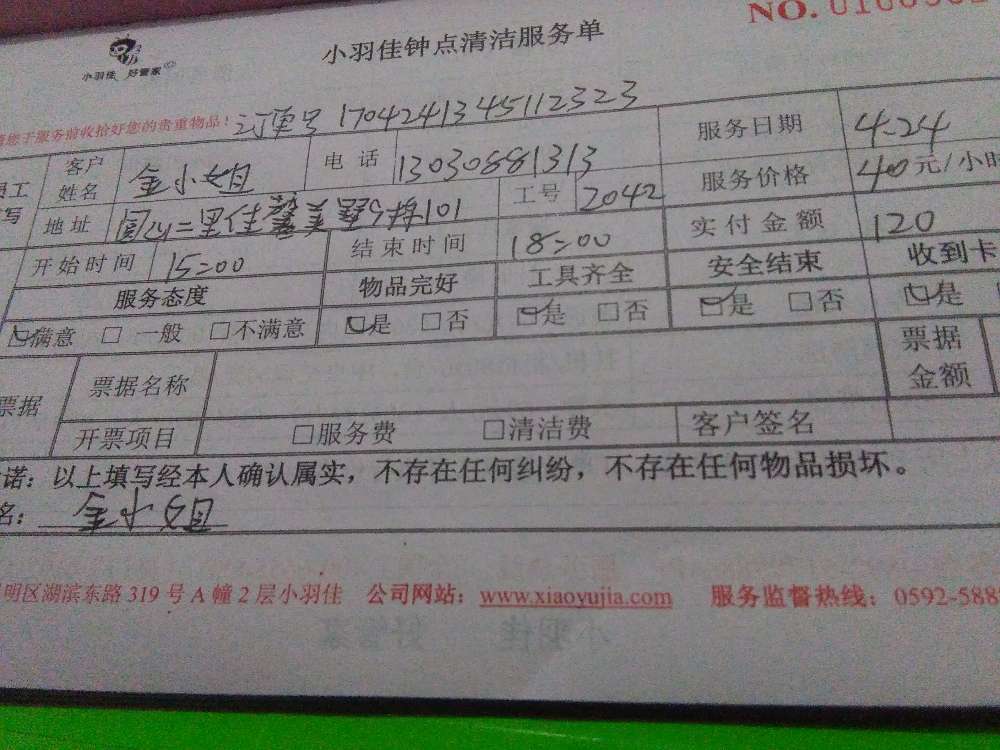 NO.
小羽佳 好管家
小羽佳钟点清洁服务单
请您于服务前收拾好您的贵重物品！ 订单号 1704241345112323
客户姓名 金小姐 电话 13030881313 服务日期 4.24
地址 101 工号 2042 服务价格 40元/小时
开始时间 15:00 结束时间 18:00 实付金额 120
服务态度 物品完好 工具齐全 安全结束 收到卡
☑满意 □ 一般 □不满意 ☑是 □否 ☑是 □否 ☑是 □否 ☑是
票据 票据名称 票据金额
开票项目 □服务费 □清洁费 客户签名
诺：以上填写经本人确认属实，不存在任何纠纷，不存在任何物品损坏。
名：金小姐
明区湖滨东路 319 号 A 幢 2 层小羽佳 公司网站：www.xiaoyujia.com 服务监督热线：0592-588